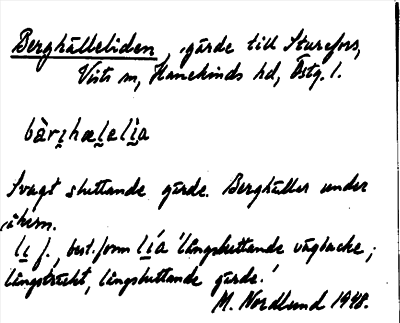 Berghälleliden, gärde till Sturefors,
Vists sn, Hanekinds hd, Östg. l.
bàrihælelìa
Svagt sluttande gärde. Berghäller under
åkern.
li f., best. form lía 'långsluttande vägbacke;
långsträckt, långsluttande gärde.'
M. Nordlund 1948.